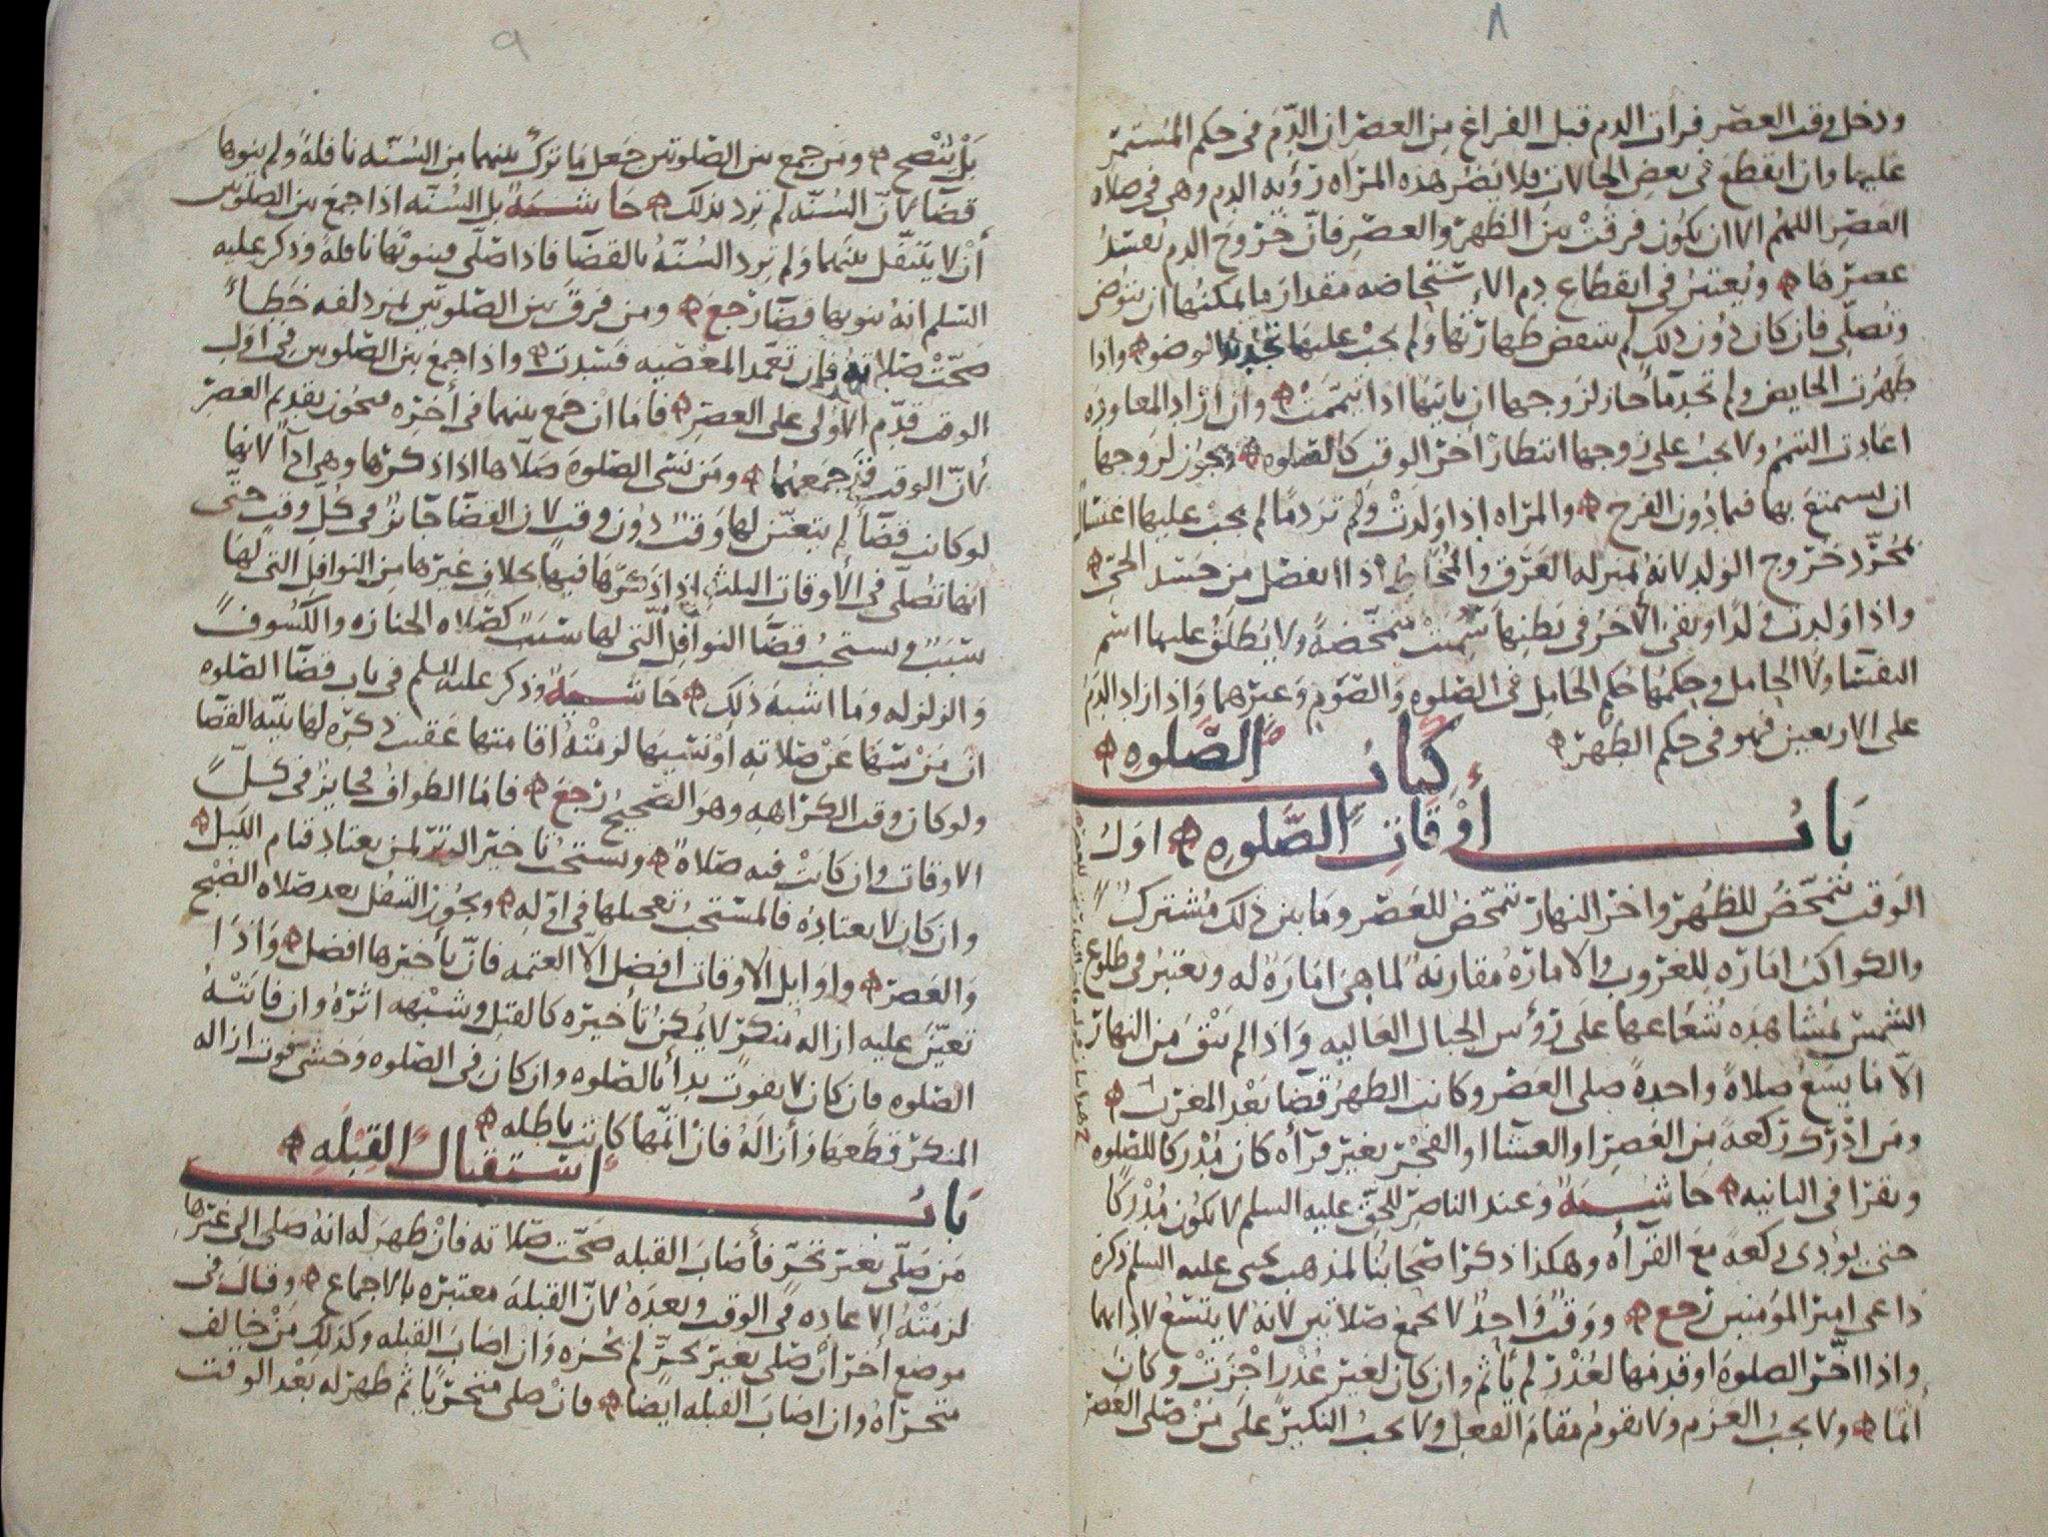 ٨
ودخل وقت العصر فرات الدم قبل الفراغ من العصر ان الدم في حكم المستمر
عليها وان انقطع في بعض الحالات فلا يضر هذه المرأه رؤيه الدم وهي في صلاه
العصر اللهم الا ان يكون فرقت بين الظهر والعصر فان خروج الدم يفسد
عصرها ويعتبر في انقطاع دم الاستحاضه مقدار ما يمكنها ان تتوضى
وتصلي فان كان دون ذلك لم ينتقض طهارتها ولم يجب عليها تجديد الوضو واذا
طهرت الحايض ولم تجد مآ جاز لزوجها ان ياتيها اذا تيممت وان اراد المعاوده
اعادت التيمم ولا يجب على زوجها انتظار اخر الوقت كالصلوه ويجوز لزوجها
ان يستمتع بها فيما دون الفرج والمراه اذا ولدت ولم تر دما لم يجب عليها اغتسال
بمجرد خروج الولد لانه بمنزله العرق والمخاط اذا انفصل من جسد الحي
واذا ولدت ولدا وبقى الاخر في بطنها سميت متمخضه ولا يطلق عليها اسم
النفسا ولا الحامل وحكمها حكم الحامل في الصلوه والصوم وغيرهما واذا زاد الدم
على الاربعين فهو في حكم الطهر
كتاب الصلوه
باب أوقات الصلوه اول
الوقت يتمحض للظهر واخر النهار يتمحض للعصر وما بين ذلك مشترك
والكواكب اماره للغروب والاماره مقارنه لما هي اماره له ويعتبر في طلوع
الشمس بمشاهده شعاعها على رؤس الجبال العاليه واذا لم يبق من النهار
الا ما يسع صلاة واحدة صلى العصر وكانت الظهر قضا بعد المغرب
ومن ادرك ركعة من العصر او العشا او الفجر بغير قرآه كان مدركا للصلوه
ويقرا في الثانيه حاشيه وعند الناصر للحق عليه السلم لا يكون مدركا
حتى يؤدي ركعة مع القرآه وهكذا ذكر اصحابنا لمذهب يحيى عليه السلم ذكره
داعي امير المؤمنين رجع ووقت واحد لا يجمع صلاتين لانه لا يتسع لادايهما
واذا اخر الصلوه او قدمها لعذر لم يأثم وان كان لغير عذر اجزت وكان
اثما ولا يجب العزم ولا يقوم مقام الفعل ولا يجب النكير على من صلى العصر
٩
بل ينصح ومن جمع بين الصلوتين جعل ما ترك بينهما من السنه نافلة ولم ينوها
قضا لان السنه لم ترد بذلك حاشيه بل السنه اذا جمع بين الصلوتين
أن لا يتنفل بينهما ولم ترد السنه بالقضا فاذا صلى فينويها نافلة وذكر عليه
السلم انه ينويها قضآ رجع ومن فرق بين الصلوتين بمزدلفه خطأ
صحت صلاته فان تعمد المعصيه فسدت واذا جمع بين الصلوتين في اول
الوقت قدم الاولى على العصر فاما ان جمع بينهما في أخره فيجوز تقديم العصر
لان الوقت قد جمعهما ومن نسي الصلوة صلاها اذا ذكرها وهي ادآ لانها
لو كانت قضآ لم يتعين لها وقت دون وقت لان القضآ جايز في كل وقت حتى
انها تصلى في الاوقات الثلث اذا ذكرها فيها بخلاف غيرها من النوافل التي لها
سبب ويستحب قضآ النوافل التي لها سبب كصلاه الجنازه والكسوف
والزلزله وما اشبه ذلك حاشيه وذكر عليه السلم في باب قضآ الصلوه
ان من سها عن صلاته او نسيها لزمته اقامتها عقيب ذكره لها بنيه القضا
ولو كان وقت الكراهه وهو الصحيح رجع فاما الطواف فجايز في كل
الاوقات وان كانت فيه صلاة ويستحب تاخير الوتر لمن يعتاد قيام الليل
وان كان لا يعتاده فالمستحب تعجيلها في اوله ويجوز التنفل بعد صلاه الصبح
والعصر واوايل الاوقات افضل الا العتمه فان تأخيرها افضل واذا
تعين عليه ازاله منكر لا يمكن تأخيره كالقتل وشبهه اثره وان فاتته
الصلوه فان كان لا يفوت بدأ بالصلوه وان كان في الصلوه وخشى فوت ازاله
المنكر قطعها وأزاله فان اتمها كانت باطله
باب استقبال القبله
من صلى بغير تحر فأصاب القبله صحت صلاته فان ظهر له انه صلى الى غيرها
لزمته الاعاده في الوقت وبعده لان القبلة معتبره بالاجماع وقال في
موضع اخر ان صلى بغير تحر لم يجزه وان اصاب القبله وكذلك من خالف
متحراه وان اصاب القبله ايضا فان صلى متحريا ثم ظهر له بعد الوقت